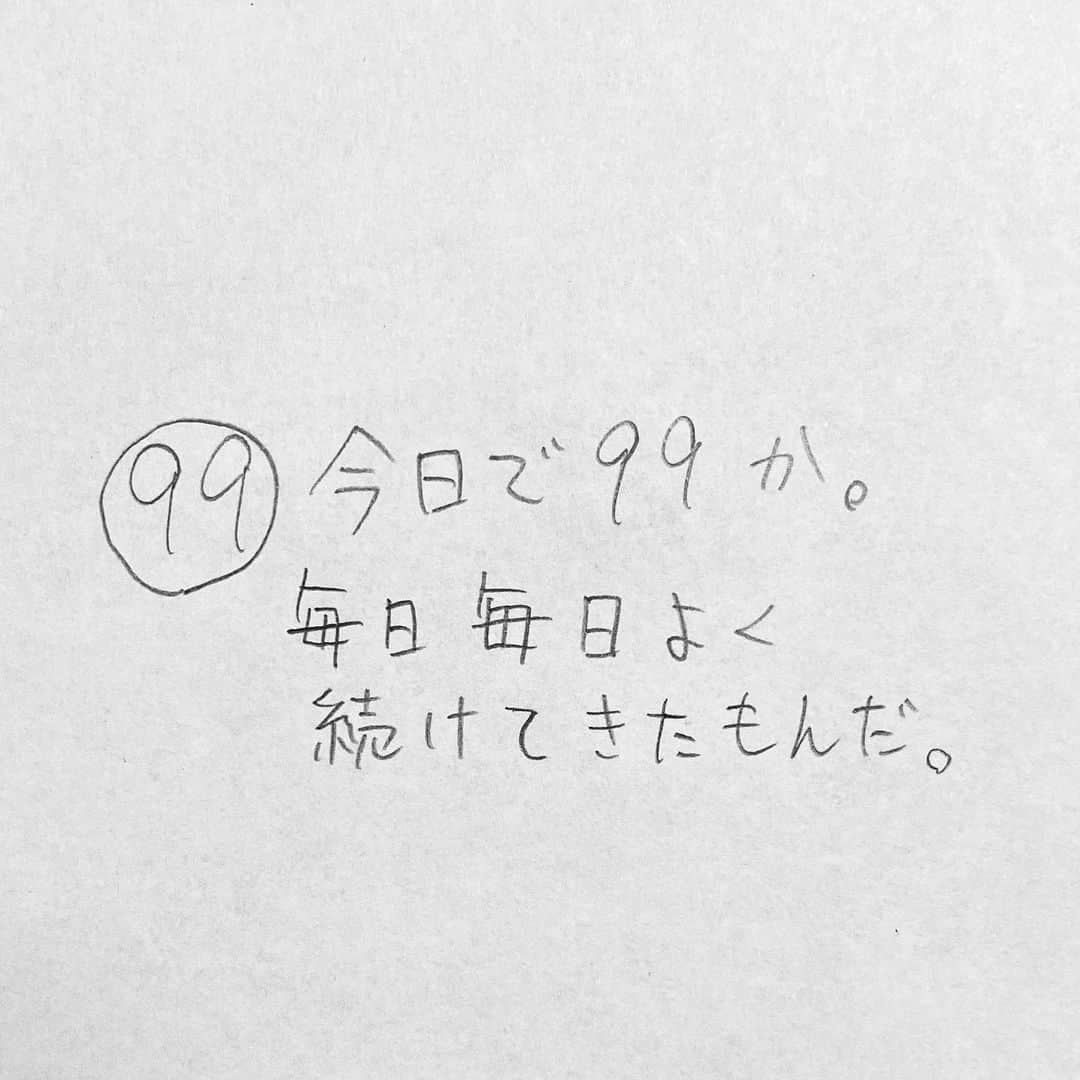 99 今日で99か。
毎日毎日よく
続けてきたもんだ。